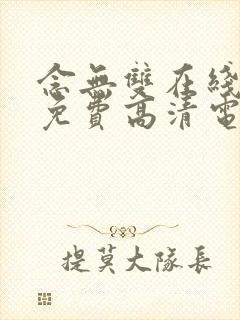 念無雙在綫
免費高清電
提莫大隊長